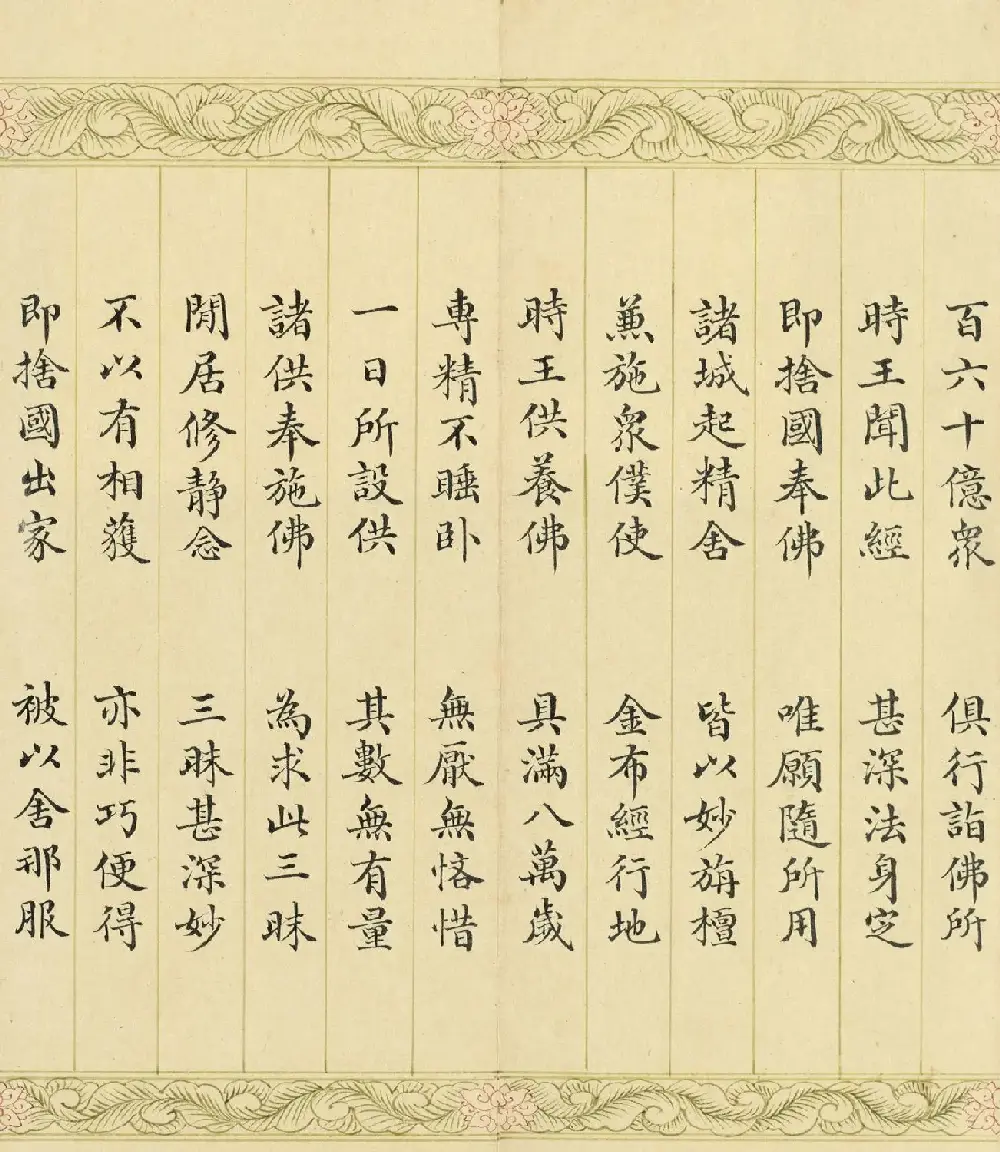 百六十億衆　俱行詣佛所
時王聞此經　甚深法身定
即捨國奉佛　唯願隨所用
諸城起精舍　皆以妙旃檀
兼施衆僕使　金布經行地
時王供養佛　具滿八萬歲
專精不睡卧　無厭無悋惜
一日所設供　其數無有量
諸供奉施佛　為求此三昧
閒居修静念　三昧甚深妙
不以有相獲　亦非巧便得
即捨國出家　被以舍那服